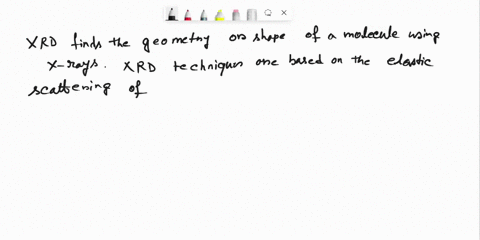 XRD finds the geometry or shape of a molecule using
X-rays. XRD techniques are based on the elastic
scattering of